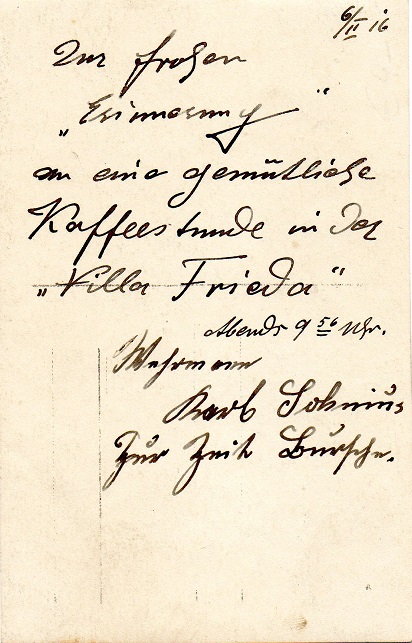 6/II 16
Zur frohen
„Erinnerung"
an eine gemütliche
Kaffeestunde in der
„Villa Frieda"
Abends 9 56 Uhr.
Wehrmann
Karl
Zur Zeit Bursche.